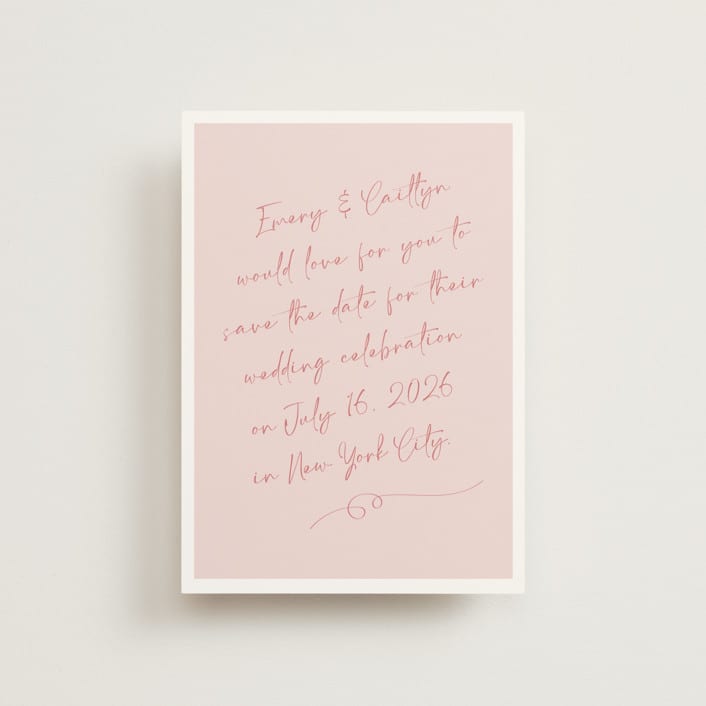 Emery & Caitlyn
would love for you to
save the date for their
wedding celebration
on July 16, 2026
in New York City.